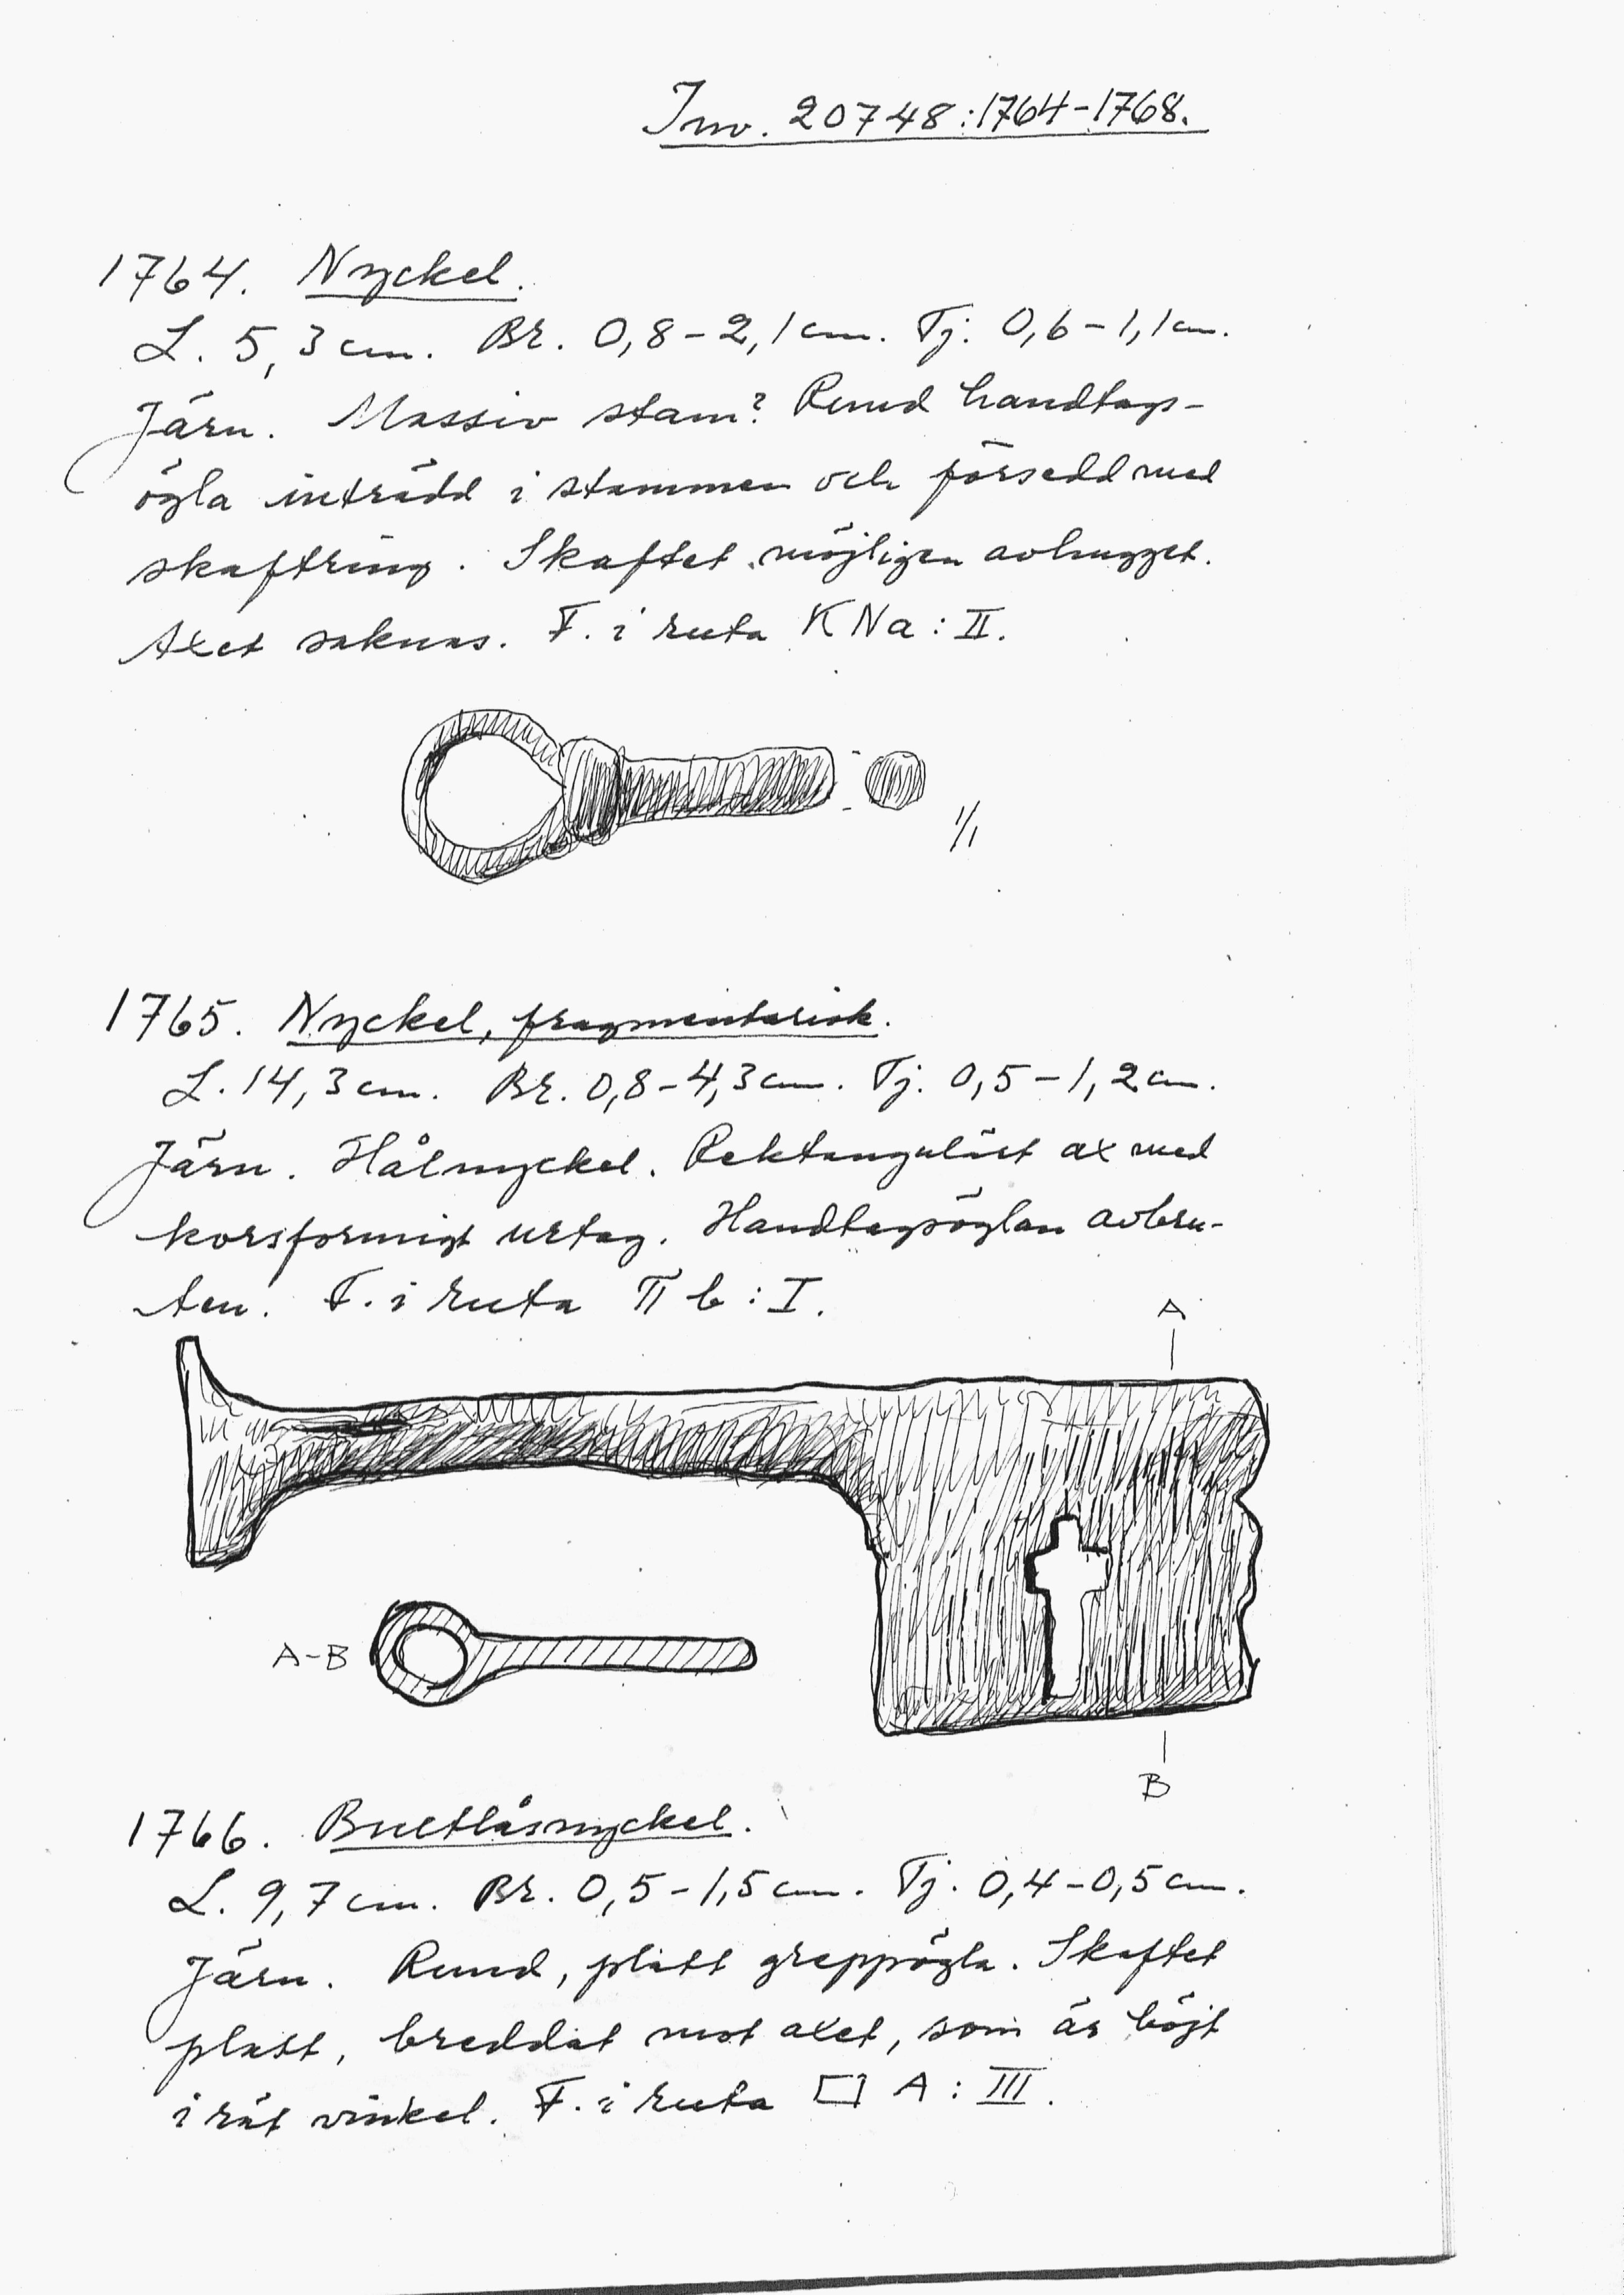 Inv. 20748:1764-1768.
1764. Nyckel.
L. 5,3 cm. Br. 0,8-2,1 cm. Tj. 0,6-1,1 cm.
Järn. Massiv stam? Rund handtags-
ögla inträdd i stammen och försedd med
skaftring. Skaftet möjligen avhugget.
Axet saknas. F. i ruta KNa:II.
1/1
1765. Nyckel, fragmentarisk.
L. 14,3 cm. Br. 0,8-4,3 cm. Tj. 0,5-1,2 cm.
Järn. Hålnyckel. Rektangulärt ax med
korsformigt urtag. Handtagsöglan avbru-
ten. F. i ruta b:I.
A
A-B
B
1766. Bultlåsnyckel.
L. 9,7 cm. Br. 0,5-1,5 cm. Tj. 0,4-0,5 cm.
Järn. Rund, platt greppögla. Skaftet
platt, breddat mot axet, som är böjt
i rät vinkel. F. i ruta □ A:III.